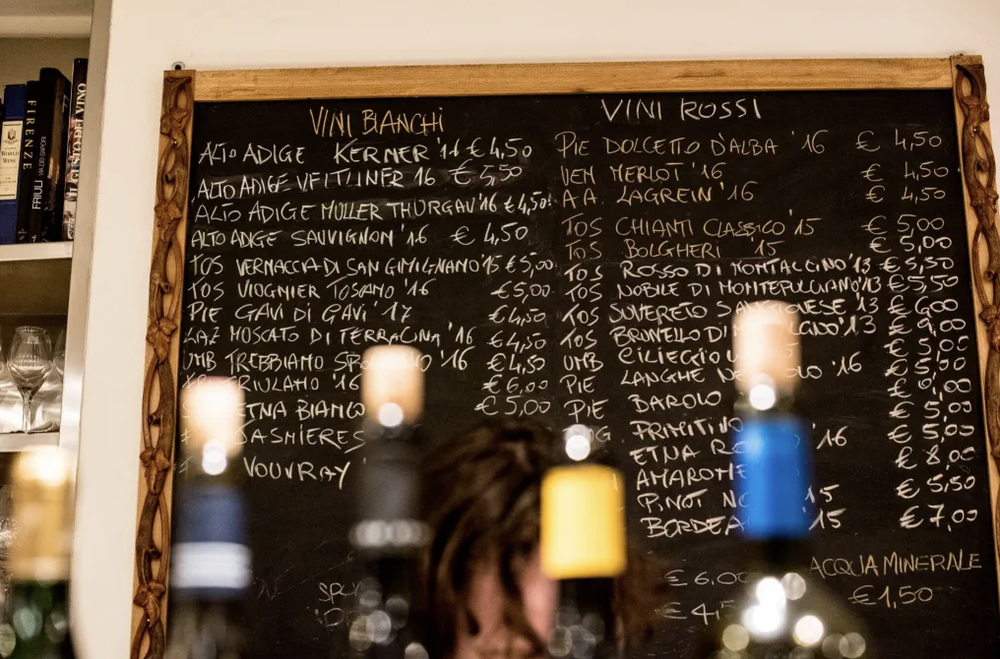 FIRENZE
FRIULI VIA DEI SAPORI
IL GUSTO DEL VINO
WORLD
WINE
VINI BIANCHI
ALTO ADIGE KERNER '16 € 4,50
ALTO ADIGE VELTLINER 16 € 5,50
ALTO ADIGE MULLER THURGAU '16 € 4,50
ALTO ADIGE SAUVIGNON '16 € 4,50
TOS VERNACCIA DI SAN GIMIGNANO '15 € 5,00
TOS VIOGNIER TOSANO '16 € 5,00
PIE GAVI DI GAVI '17 € 4,50
LAZ MOSCATO DI TERRACINA '16 € 4,50
UMB TREBBIANO '16 € 4,50
FRIULANO '16 € 6,00
ETNA BIANCO € 5,00
JASNIERES
VOUVRAY
VINI ROSSI
PIE DOLCETTO D'ALBA '16 € 4,50
VEN MERLOT '16 € 4,50
A.A. LAGREIN '16 € 4,50
TOS CHIANTI CLASSICO '15 € 5,00
TOS BOLGHERI '15 € 5,00
TOS ROSSO DI MONTALCINO '13 € 5,50
TOS NOBILE DI MONTEPULCIANO '13 € 5,50
TOS SUVERETO SANGIOVESE '13 € 6,00
TOS BRUNELLO DI '13 € 9,00
UMB CILIEGIOLO € 5,00
PIE LANGHE '16 € 5,00
PIE BAROLO € 9,00
PRIMITIVO € 5,00
ETNA '16 € 5,00
AMARONE € 8,00
PINOT '15 € 5,50
BORDEA '15 € 7,00
€ 6,00
€ 4,5
ACQUA MINERALE
€ 1,50